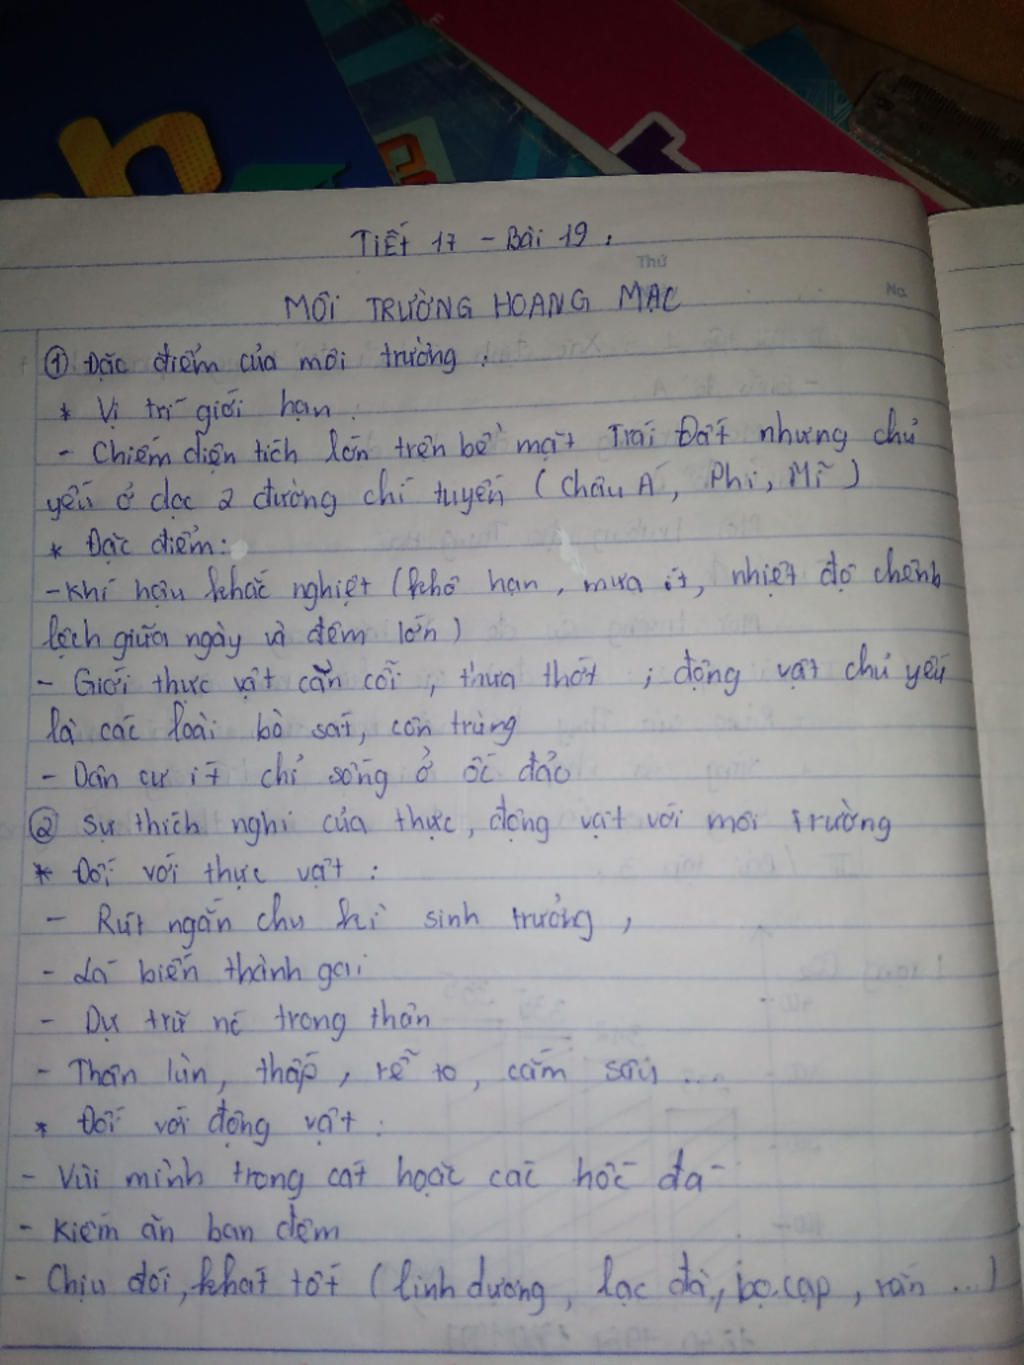 TIẾT 17 - Bài 19.
Thứ
No.
MÔI TRƯỜNG HOANG MẠC
① Đặc điểm của môi trường.
* Vị trí giới hạn:
- Chiếm diện tích lớn trên bề mặt Trái Đất nhưng chủ
yếu ở dọc 2 đường chí tuyến (Châu Á, Phi, Mĩ)
* Đặc điểm:
- Khí hậu khắc nghiệt (khô hạn, mưa ít, nhiệt độ chênh
lệch giữa ngày và đêm lớn)
- Giới thực vật cằn cỗi, thưa thớt; động vật chủ yếu
là các loài bò sát, côn trùng
- Dân cư ít chỉ sống ở ốc đảo
② Sự thích nghi của thực, động vật với môi trường
* Đối với thực vật:
- Rút ngắn chu kì sinh trưởng,
- Lá biến thành gai
- Dự trữ nc trong thân
- Thân lùn, thấp, rễ to, cắm sâu ...
* Đối với động vật:
- Vùi mình trong cát hoặc các hốc đá
- Kiếm ăn ban đêm
- Chịu đói, khát tốt (linh dương, lạc đà, bọ cạp, rắn ...)